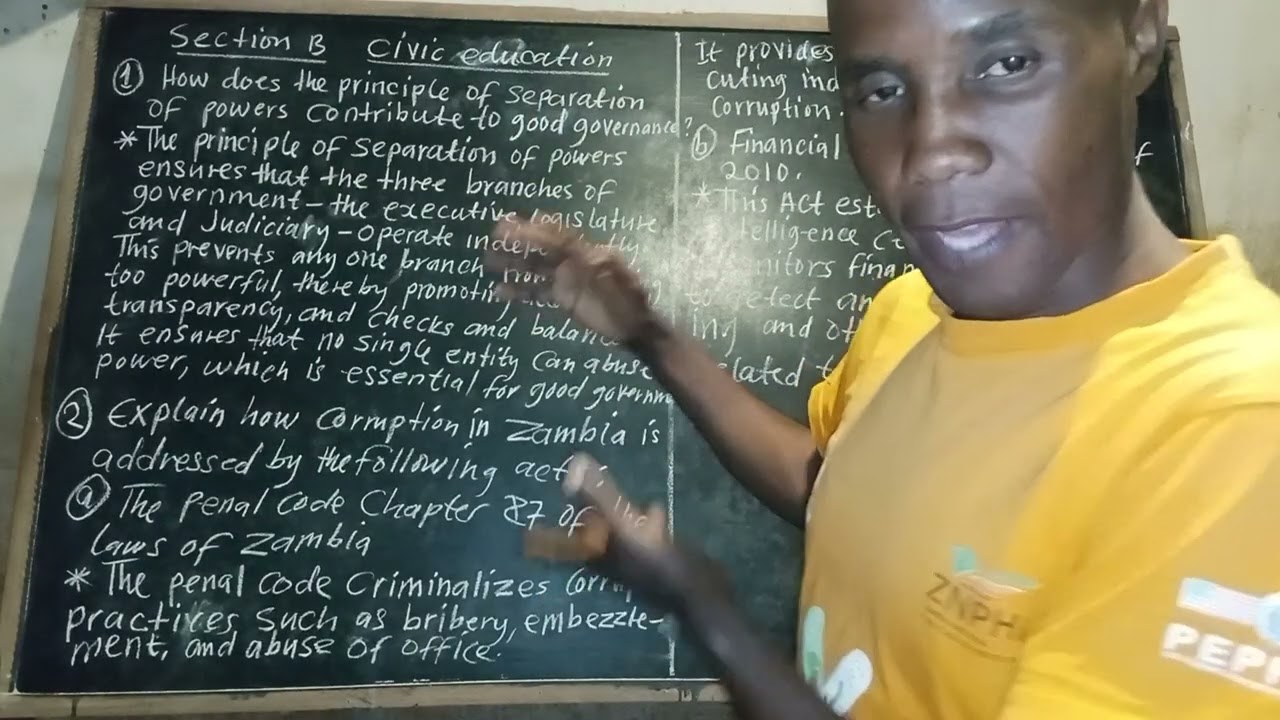 Section B Civic education
① How does the principle of separation
of powers contribute to good governance?
* The principle of separation of powers
ensures that the three branches of
government - the executive, legislature
and Judiciary - operate independently
This prevents any one branch from
too powerful, thereby promoting
transparency, and checks and balan
It ensures that no single entity can abuse
power, which is essential for good governm
② Explain how corruption in Zambia is
addressed by the following act
ⓐ The penal code Chapter 87 of the
laws of Zambia
* The penal code criminalizes corru
practices such as bribery, embezzle-
ment, and abuse of office.
It provides
cuting ind
corruption.
ⓑ Financial
2010.
* This Act est
telligence Ce
nitors finan
to detect an
ing and ot
elated t
of
ZNPH
PEPF